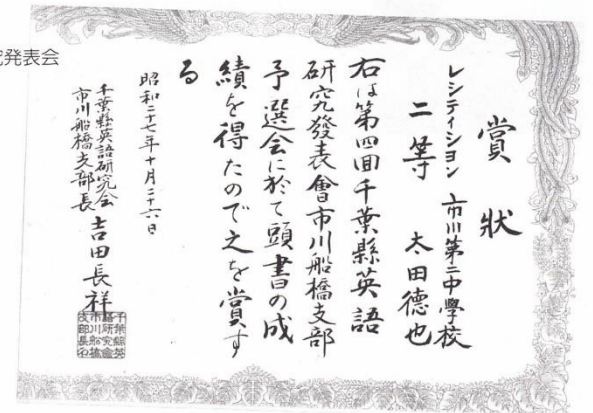 究発表会
賞狀
レシティシヨン 市川第二中學校
二等 太田德也
右は第四回千葉縣英語
研究發表會市川船橋支部
予選会に於て頭書の成
績を得たので之を賞す
る
昭和二十七年十月二十六日
千葉縣英語研究会
市川船橋支部長 吉田長祥